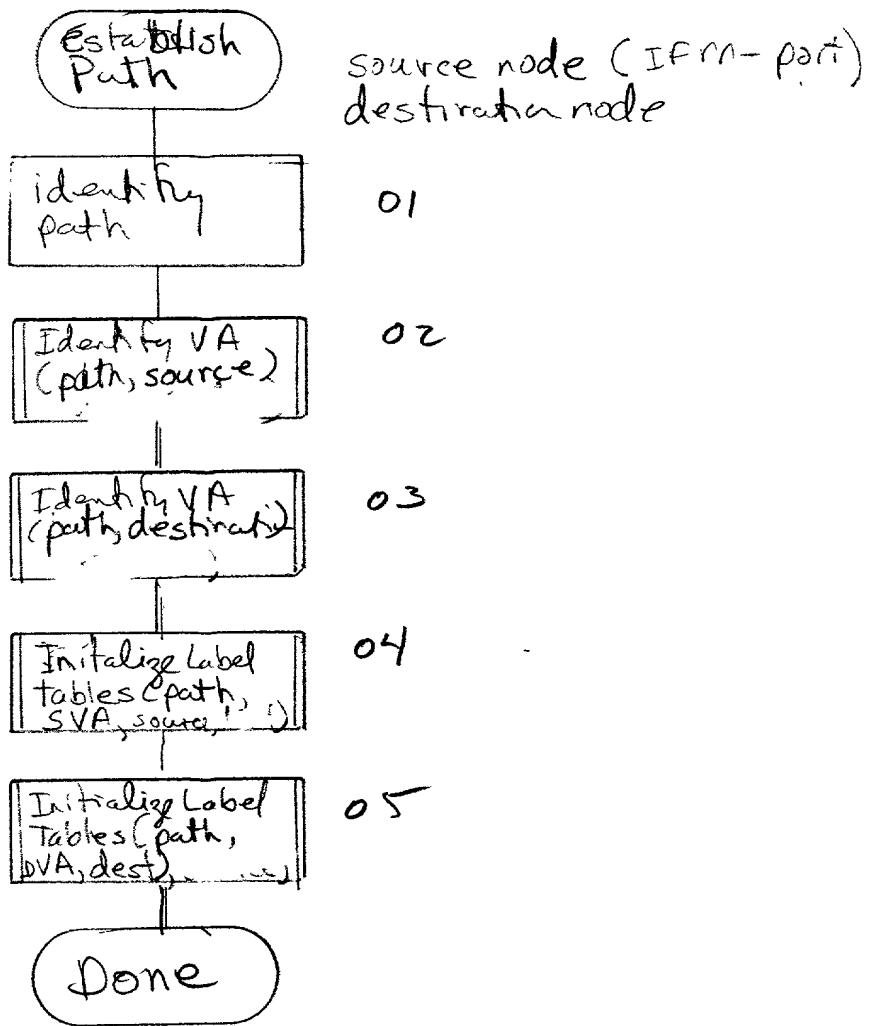 Establish
Path
source node (IFM-port)
destination node
identify
path
01
Identify VA
(path, source)
02
Identify VA
(path, destinati)
03
Initalize Label
tables (path,
SVA, source,
04
Initialize Label
Tables (path,
DVA, dest),
05
Done